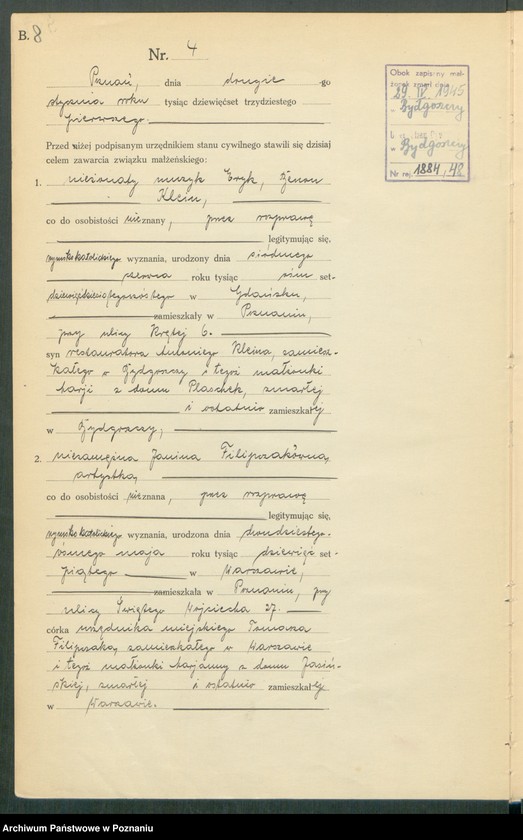 B. 8
Nr. 4
Poznań, dnia drugiego
stycznia roku tysiąc dziewięćset trzydziestego
pierwszego.
Przed niżej podpisanym urzędnikiem stanu cywilnego stawili się dzisiaj
celem zawarcia związku małżeńskiego:
1. nieżonaty muzyk Eryk, Zenon
Klein,
co do osobistości nieznany, przez rozprawę
legitymując się,
rzymsko katolickiego wyznania, urodzony dnia siódmego
czerwca roku tysiąc ośm set-
dziewięćdziesiątegoszóstego w Gdańsku,
zamieszkały w Poznaniu,
przy ulicy Krętej 6.
syn restauratora Antoniego Kleina, zamiesz-
kałego w Bydgoszczy i tegoż małżonki
Marji z domu Plaschek, zmarłej
i ostatnio zamieszkałej
w Bydgoszczy,
2. niezamężna Janina Filipszakówna,
artystka,
co do osobistości nieznana, przez rozprawę
legitymując się,
rzymsko katolickiego wyznania, urodzona dnia dwudziestego-
ósmego maja roku tysiąc dziewięć set-
piątego w Warszawie,
zamieszkała w Poznaniu, przy
ulicy Świętego Wojciecha 27.
córka urzędnika miejskiego Tomasza
Filipszaka, zamieszkałego w Warszawie
i tegoż małżonki Marjanny z domu Jasiń-
skiej, zmarłej i ostatnio zamieszkałej
w Warszawie.
Obok zapisany mał-
żonek zmarł dnia
29. IV 1945
w Bydgoszczy
Bydgoszczy
Nr rej. 1884/48
Archiwum Państwowe w Poznaniu